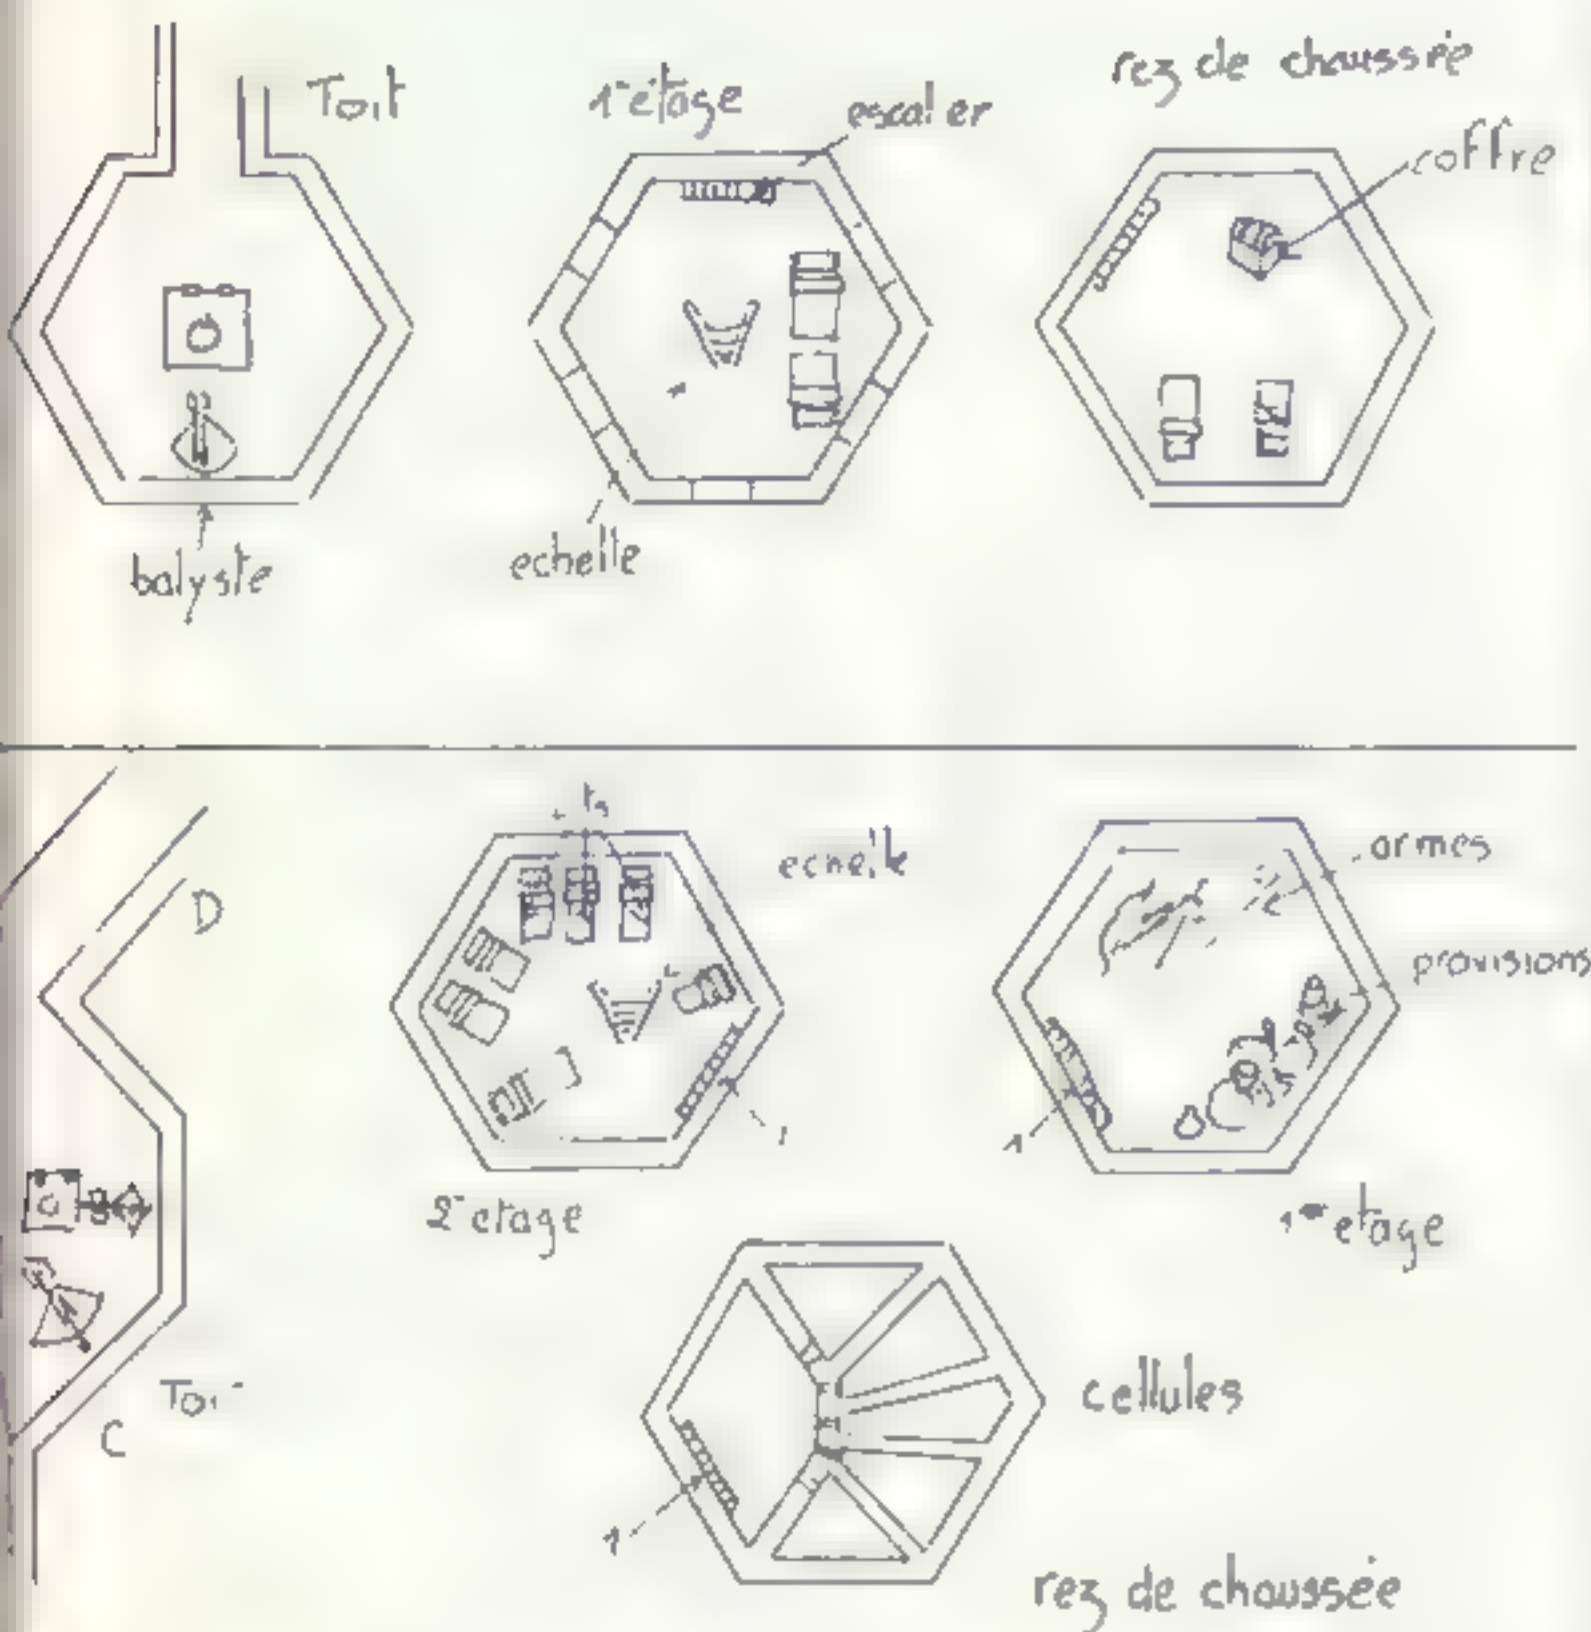 Toit
1er étage
escalier
rez de chaussée
coffre
balyste
echelle
echelle
armes
D
provisions
1
1
2e etage
1er etage
Toit
C
cellules
1
rez de chaussée